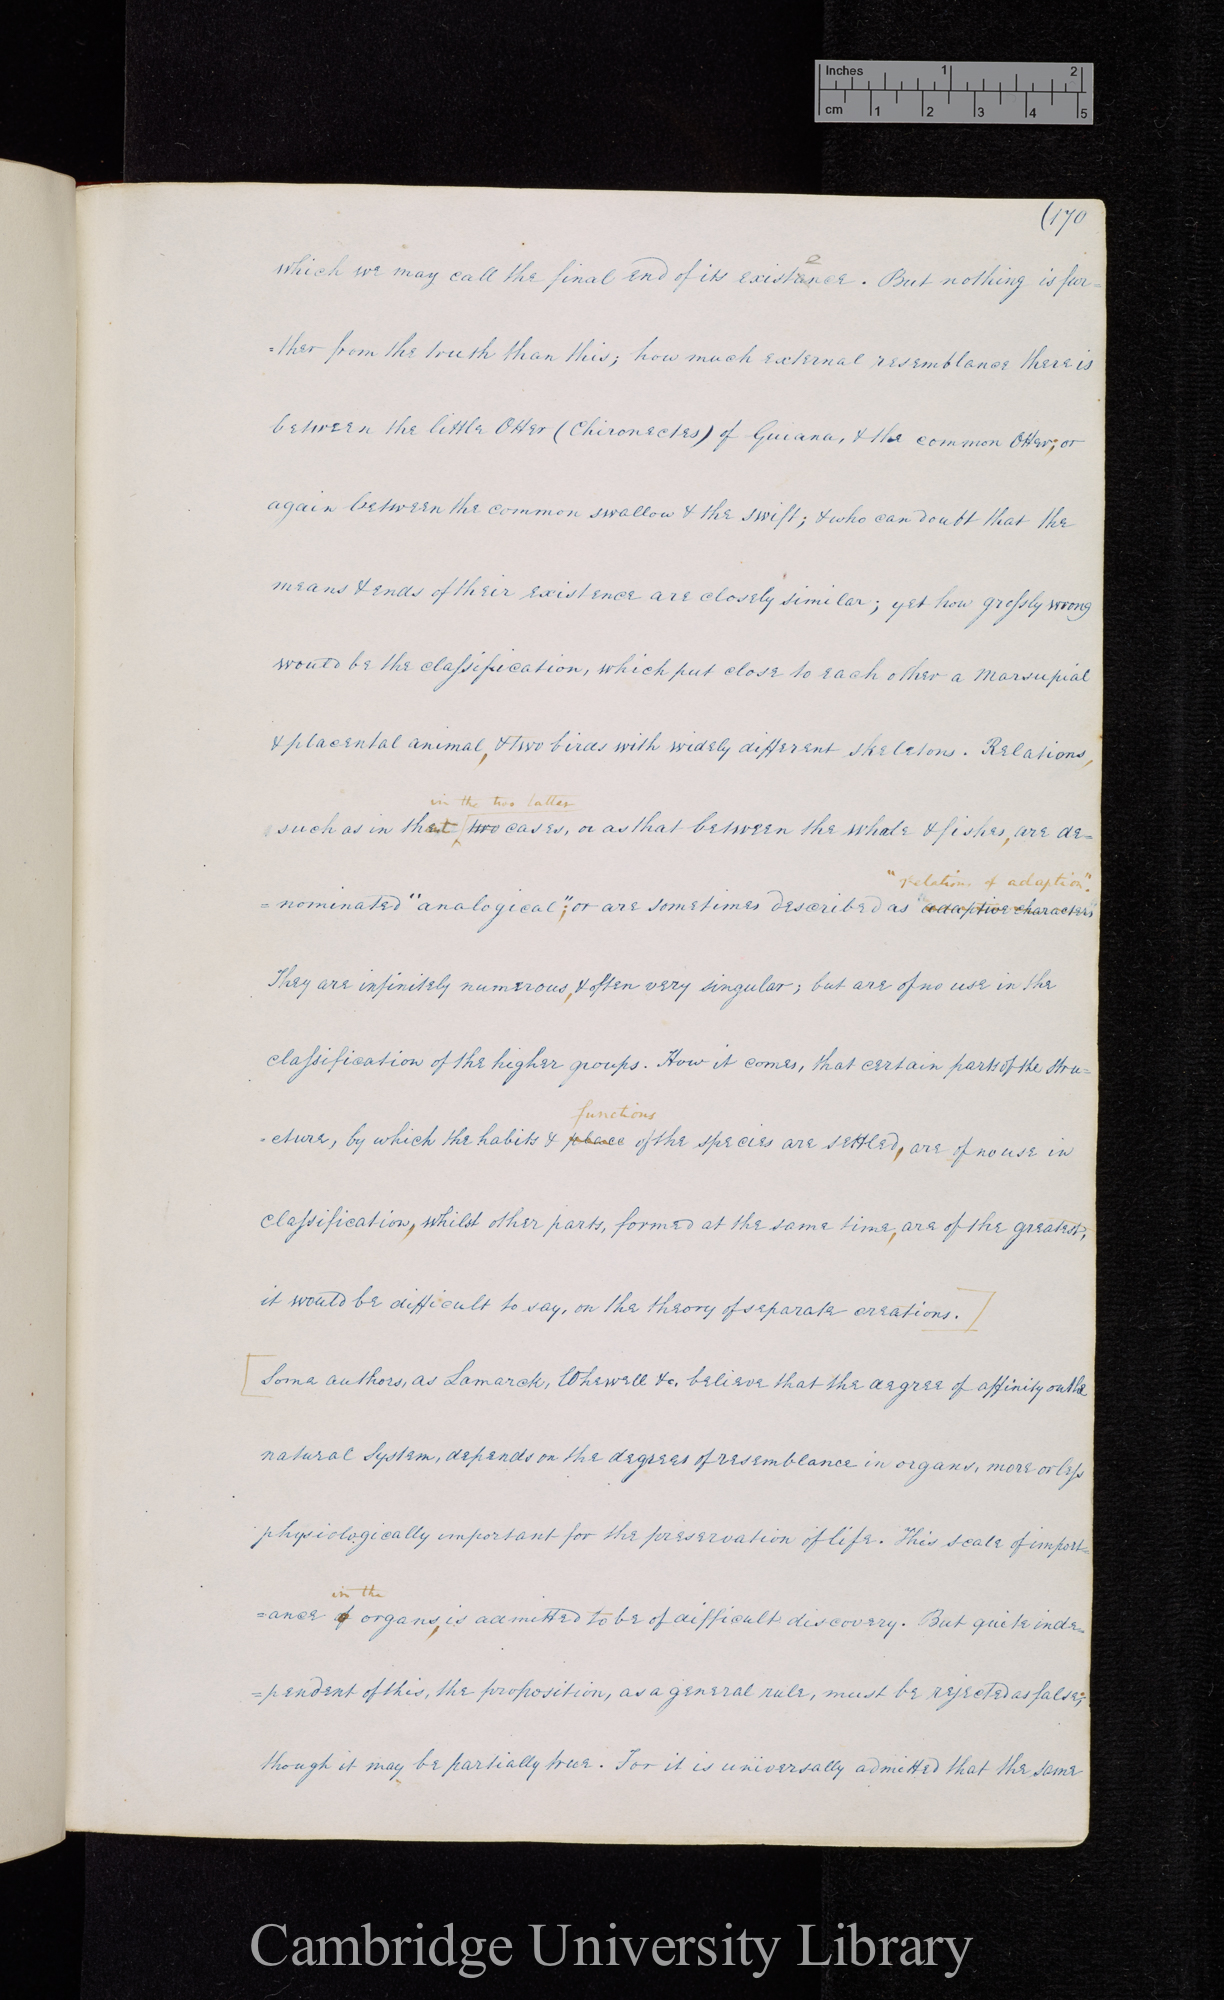 Inches 1 2
cm 1 2 3 4 5
(170
which we may call the final end of its existence. But nothing is fur=
=ther from the truth than this; how much external resemblance there is
between the little Otter (Chironectes) of Guiana, & the common Otter; or
again between the common swallow & the swift; & who can doubt that the
means & ends of their existence are closely similar; yet how grossly wrong
would be the classification, which put close to each other a Marsupial
& placental animal, & two birds with widely different skeletons. Relations,
in the two latter
such as in these two cases, or as that between the whale & fishes, are de=
"relations of adaption".
=nominated "analogical"; or are sometimes described as "adaptive characters"
They are infinitely numerous, & often very singular; but are of no use in the
classification of the higher groups. How it comes, that certain parts of the stru=
functions
=cture, by which the habits & place of the species are settled, are of no use in
classification, whilst other parts, formed at the same time, are of the greatest,
it would be difficult to say, on the theory of separate creations.]
[Some authors, as Lamarck, Whewell &c, believe that the degree of affinity on the
natural System, depends on the degrees of resemblance in organs, more or less
physiologically important for the preservation of life. This scale of import=
in the
=ance of organs, is admitted to be of difficult discovery. But quite inde=
=pendent of this, the proposition, as a general rule, must be rejected as false;
though it may be partially true. For it is universally admitted that the same
Cambridge University Library